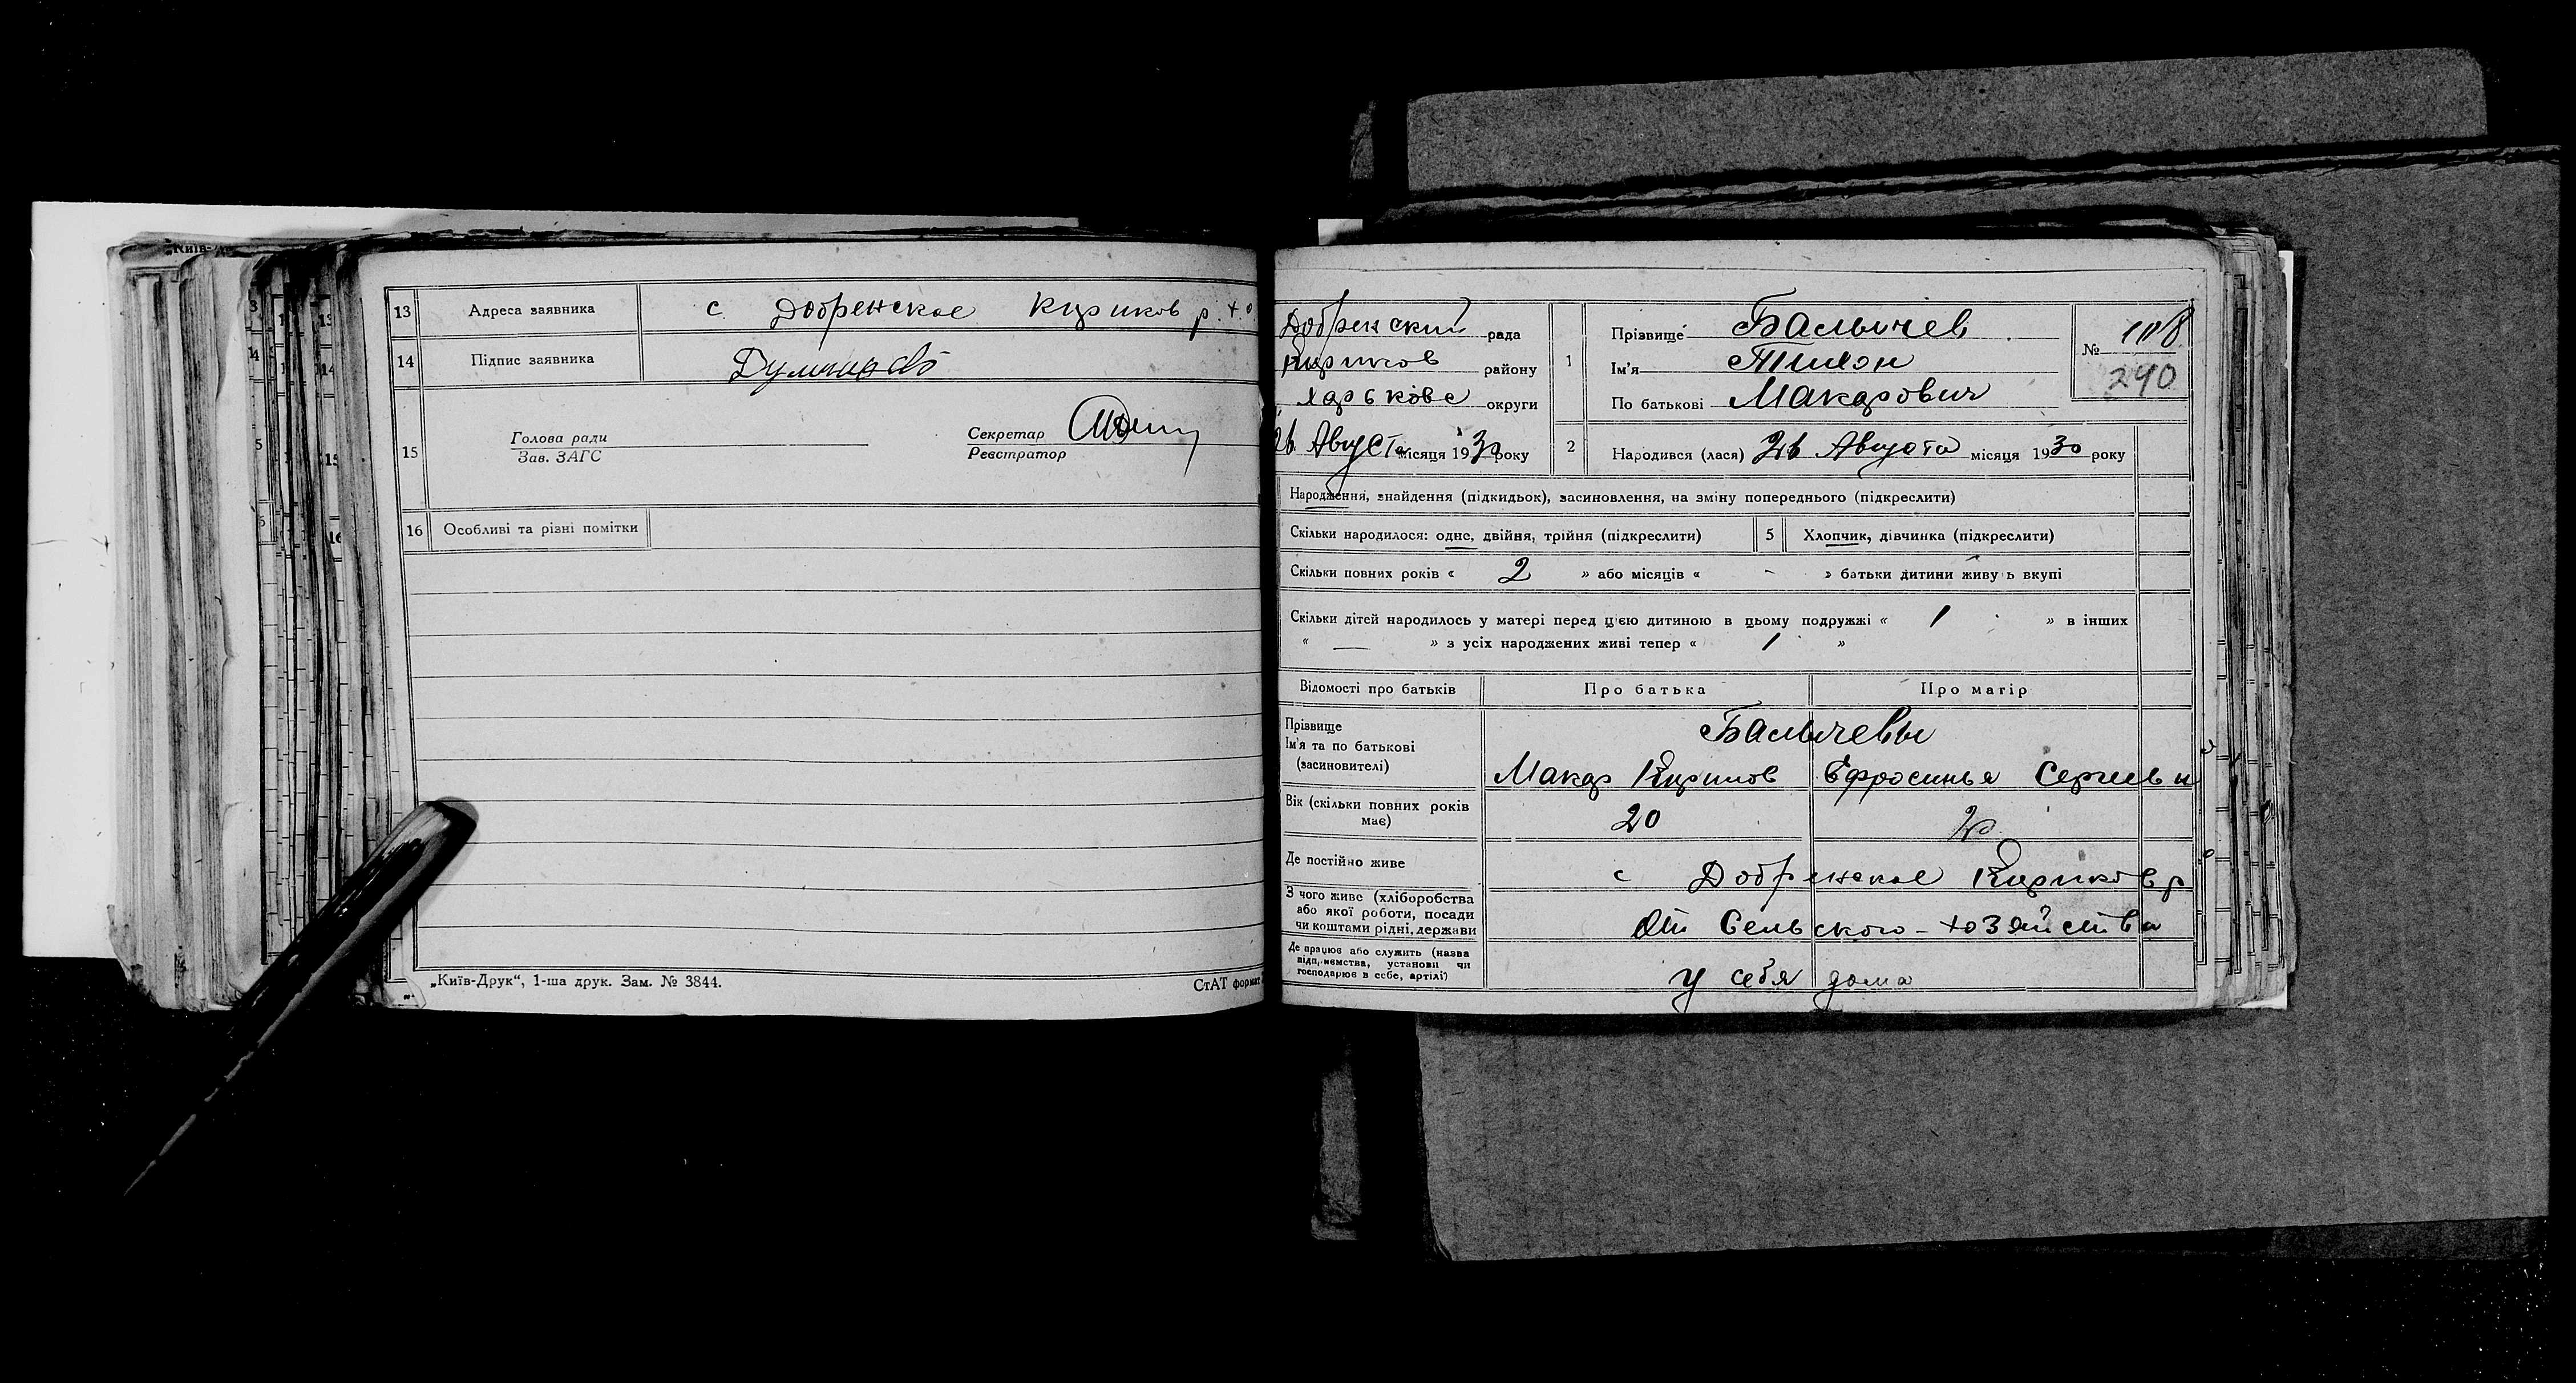 „Київ-Др
13 Адреса заявника с. Добренское Кириков р. х. о
14 Підпис заявника
15 Голова ради
Зав. ЗАГС
Секретар
Реєстратор
16 Особливі та різні помітки
„Київ-Друк“, 1-ша друк. Зам. № 3844.
СтАТ формат
Добренский рада
Кириков району
Харькове округи
26 Августа місяця 1930 року
1 Прізвище Балычев
Ім'я Тихон
По батькові Макарович
№ 118
240
2 Народився (лася) 26 Августа місяця 1930 року
Народження, знайдення (підкидьок), засиновлення, на зміну попереднього (підкреслити)
Скільки народилося: одне, двійня, трійня (підкреслити) 5 Хлопчик, дівчинка (підкреслити)
Скільки повних років « 2 » або місяців « - » батьки дитини живуть вкупі
Скільки дітей народилось у матері перед цією дитиною в цьому подружжі « 1 » в інших
« — » з усіх народжених живі тепер « 1 »
Відомості про батьків Про батька Про матір
Прізвище Балычевы
Ім'я та по батькові
(засиновителі) Макар Кирилов Ефросинья Сергиевн
Вік (скільки повних років має) 20 20
Де постійно живе с Добренское Кириков р
З чого живе (хліборобства
або якої роботи, посади
чи коштами рідні, держави От Сельского-хозяйства
Де працює або служить (назва
підприємства, установи чи
господарює в себе, артілі) у себя дома